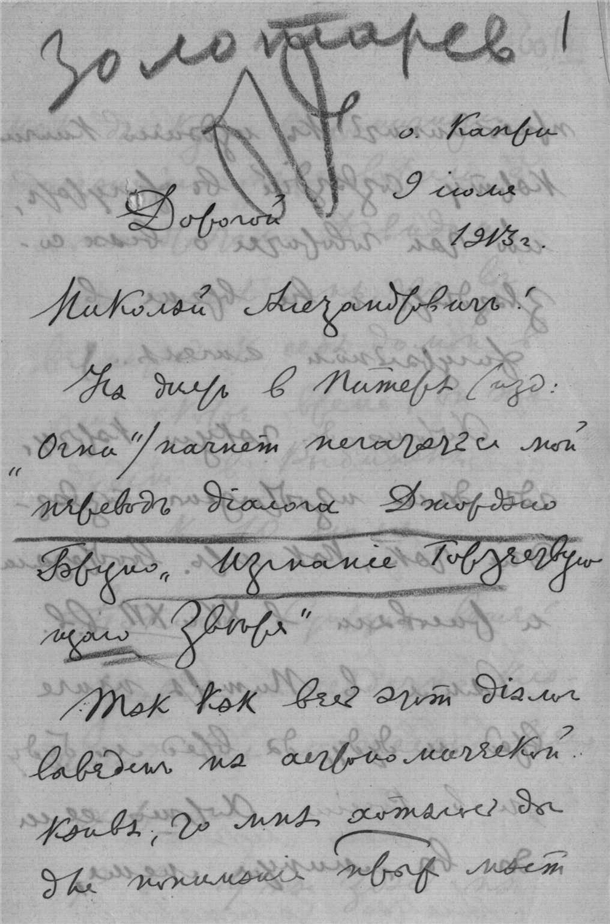 Золотарев 1
о. Капри
9 июля
Дорогой 1913 г.
Николай Александрович!
На днях в Питере (изд:
"Огни") начнет печататься мой
переводъ діалога Джордано
Бруно „Изгнаніе Торжествую
щаго Звѣря"
Так как весь этот діалог
наведен на астрономической
канвѣ, то мнѣ хотѣлось бы
для пониманія мѣст